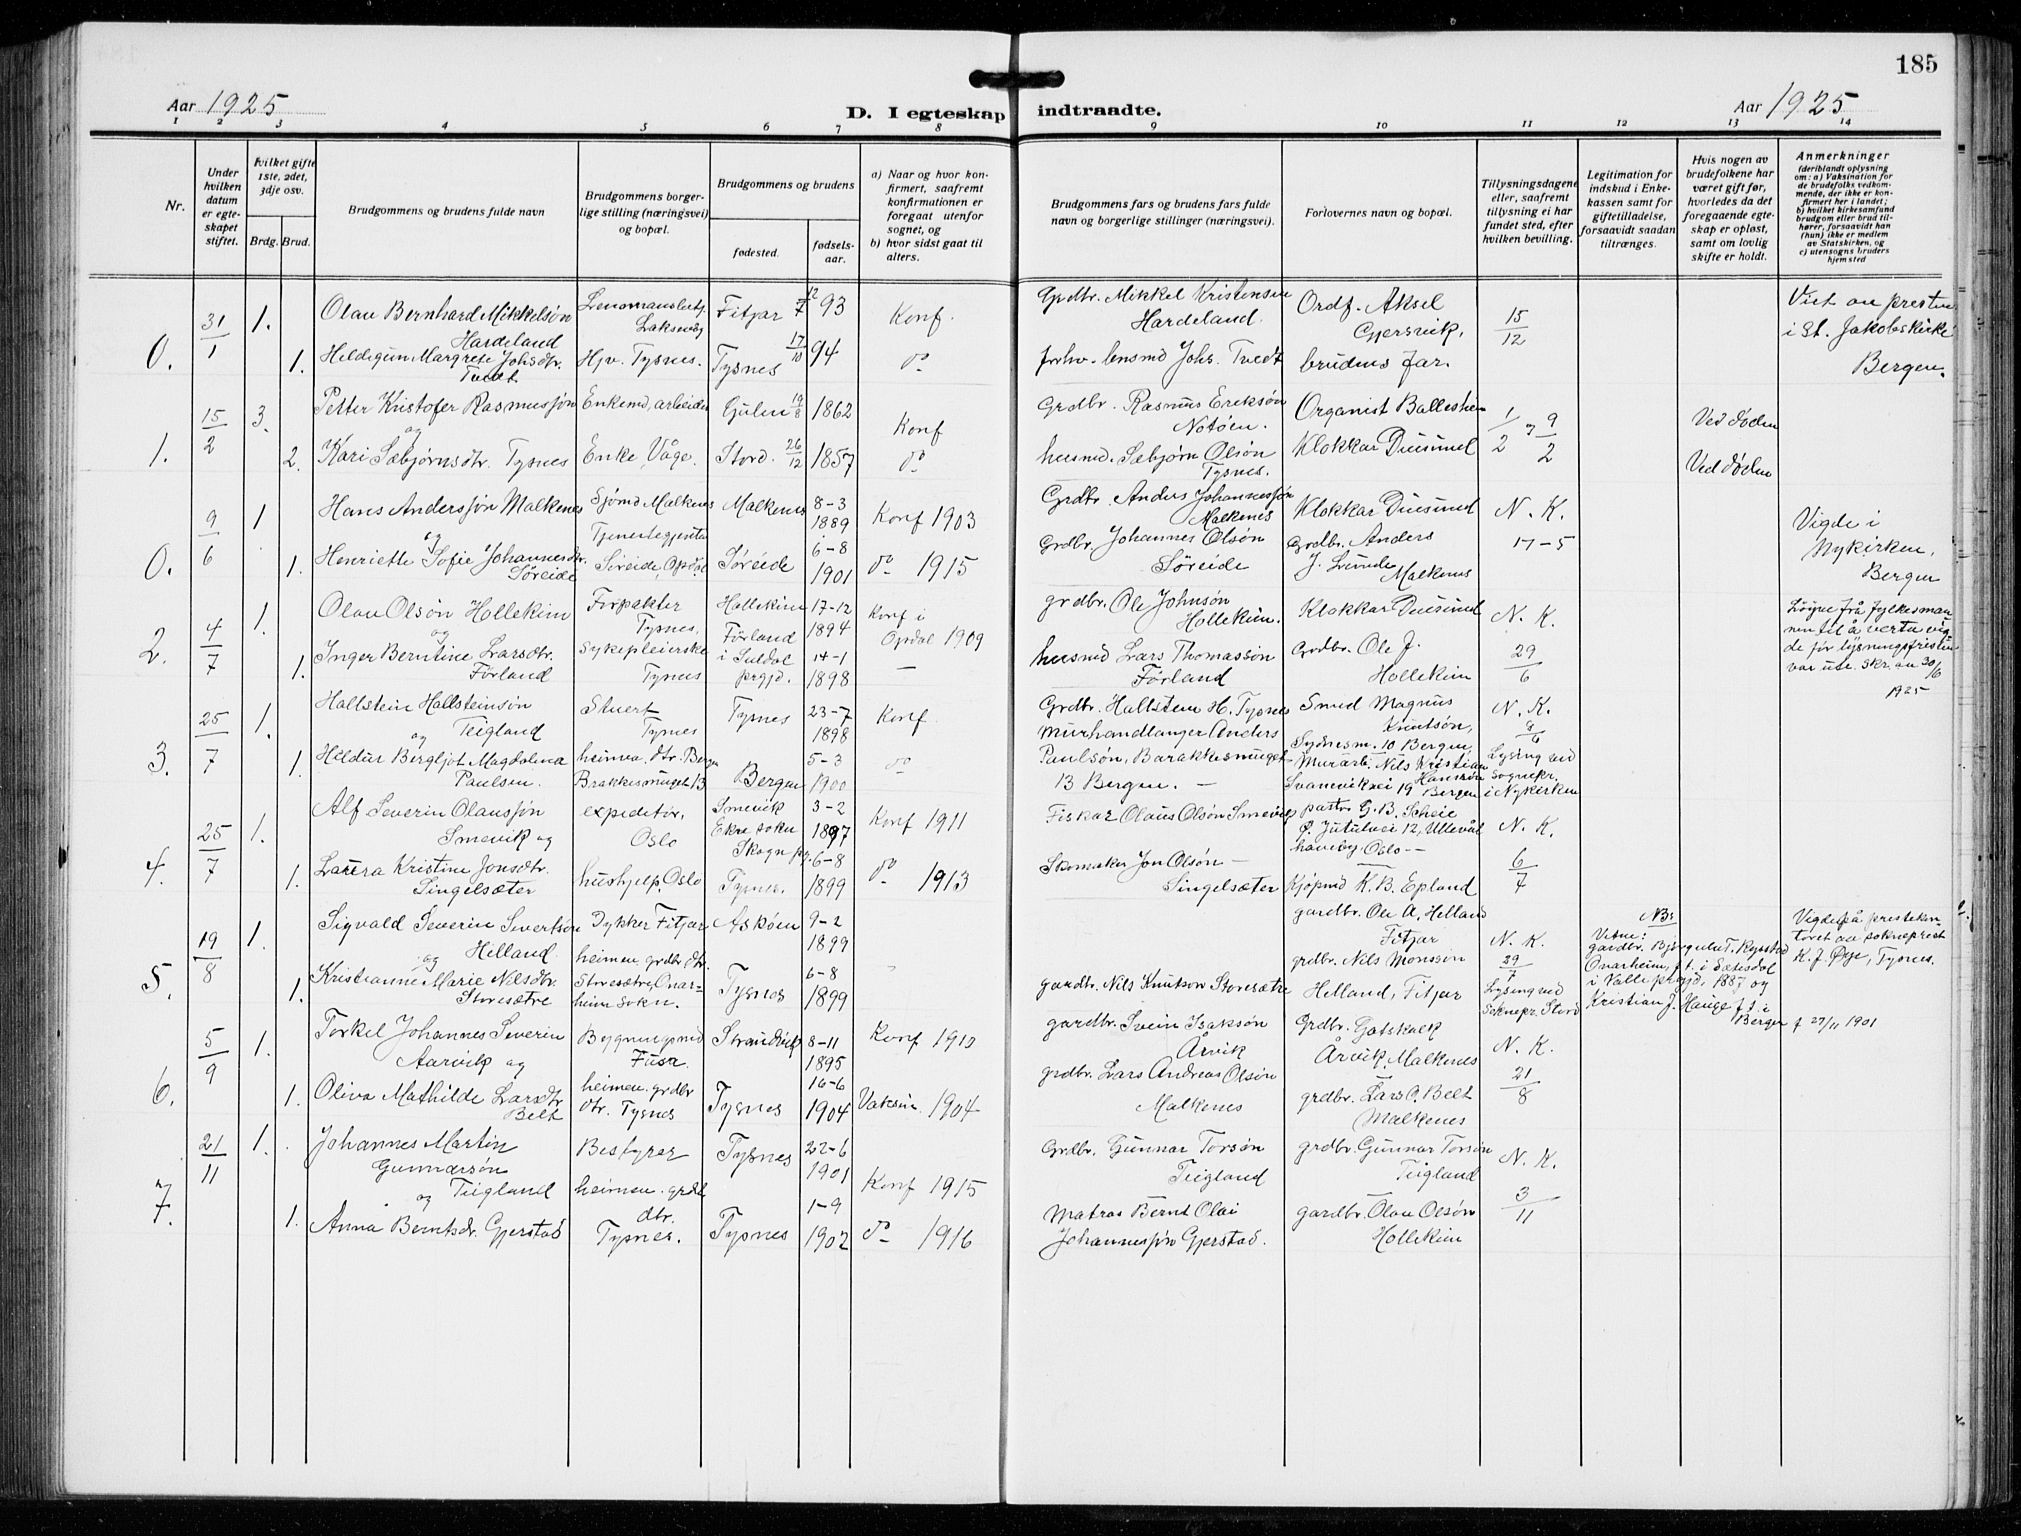 185
Aar 1925
D. I egteskap indtraadte.
Aar 1925
1 2 3 4 5 6 7 8 9 10 11 12 13 14
Nr.
Under hvilken datum er egteskapet stiftet.
hvilket gifte 1ste, 2det, 3dje osv.
Brdg. Brud.
Brudgommens og brudens fulde navn
Brudgommens borgerlige stilling (næringsvei) og bopæl.
Brudgommens og brudens
fødested. fødselsaar.
a) Naar og hvor konfirmert, saafremt konfirmationen er foregaat utenfor sognet, og
b) hvor sidst gaat til alters.
Brudgommens fars og brudens fars fulde navn og borgerlige stillinger (næringsvei).
Forlovernes navn og bopæl.
Tillysningsdagene eller, saafremt tillysning ei har fundet sted, efter hvilken bevilling.
Legitimation for indskud i Enkekassen samt for giftetilladelse, forsaavidt saadan tiltrænges.
Hvis nogen av brudefolkene har været gift før, hvorledes da det foregaaende egteskap er opløst, samt om lovlig skifte er holdt.
Anmerkninger
(deriblandt oplysning om: a) Vaksination for de brudefolks vedkommende, der ikke er konfirmert her i landet;
b) hvilket kirkesamfund brudgom eller brud tilhører, forsaavidt han (hun) ikke er medlem av Statskirken, og
c) utensogns bruders hjemsted
0. 31/1 1. Olav Bernhard Mikkelsøn Hardeland
Lensmansbetj. Laksevåg Fitjar 7/12 93 Konf.
Grdbr. Mikkel Kristensen Hardeland.
Ordf. Aksel Gjersvik, 15/12
Viet av presten i St. Jakobskirke Bergen.
1. Heldigun Margrete Johsdtr. Tvedt
Hjv. Tysnes. Tysnes 17/10 94 do
forhv. lensmd Johs. Tvedt brudens far.
1. 15/2 3. Petter Kristofer Rasmussøn og
Enkemd, arbeider Gulen 19/8 1862 Konf
Grdbr. Rasmus Eriksøn Notøen.
Organist Ballesheim 1/2 og 9/2 Ved døden
2. Kari Sæbjørnsdtr. Tysnes Enke, Våge. Stord. 26/12 1857 do
husmd. Sæbjørn Olsøn Tysnes.
Klokkar Duesund Ved døden
0. 9/6 1 Hans Andersøn Malkenes og
Sjømd, Malkenes Malkenes 8-3 1889 Konf 1903
Grdbr. Anders Johannessøn Malkenes
Klokkar Duesund N. K. 17-5
Vigde i Nykirken, Bergen
1. Henriette Sofie Johannesdtr. Søreide
Tjenestegjenta Søreide, Opdal Søreide 6-8 1901 do 1915
Grdbr. Johannes Olsøn Søreide
Grdbr. Anders J. Lunde Malkenes
2. 4/7 1. Olav Olsøn Hollekim og
Forpakter Tysnes, Hollekim 17-12 1894 Konf i Opdal 1909
grdbr. Ole Johnsøn Hollekim.
Klokkar Duesund N. K. 29/6
Løyve frå fylkesmannen til å verta vigde før lysningsfristen var ute. Skr. av 30/6 1925
1. Inger Berntine Larsdtr. Førland
Sykepleierske Tysnes Førland i Suldal prgjd. 14-1 1898 —
husmd Lars Thomassøn Førland
Grdbr. Ole J. Hollekim
3. 25/7 1. Hallstein Hallsteinsøn Teigland og
Stuert Tysnes Tysnes 23-7 1898 Konf.
Grdbr. Hallstein H. Tysnes
Smed Magnus Knutsøn, Sydnesm. 10 Bergen, N. K.
1. Heldur Bergljot Magdalena Paulsen.
heimev. dtr. Bergen Brakkesmuget 13 Bergen 5-3 1900 do
Murhandlanger Anders Paulsøn, Barakkesmuget 13 Bergen. —
Murarb. Nils Kristian Hansøn Svanevikvei 19 Bergen
Lysing ved Sognepr. i Nykirken
4. 25/7 1. Alf Severin Olaussøn Smevik og
expeditør, Oslo Smevik Ekne sokn Skogn pg. 3-2 1897 Konf 1911
Fiskar Olaus Olsøn Smevik
pastor G. B. Scheie Ø. Jutulvei 12, Ullevål haveby Oslo — N. K. 6/7
1. Laura Kristine Jonsdtr. Singelsæter
hushjelp. Oslo Tysnes. 6-8 1899 do 1913
Skomaker Jon Olsøn — Singelsæter
Kjøpmd K. B. Epland
5. 19/8 1. Sigvald Severin Sivertsøn Helland. og
Dykker Fitjar Askøen 9-2 1899
gardbr. Ole A. Helland Fitjar N. K. 29/7
NB: Vitne: gardbr. Bjørgulv T. Rysstad Onarheim, f. t. i Sætesdal i Valle prgjd. 1887 og Kristian J. Hauge f. t. i Bergen f 27/11 1901
Vigde på prestekontoret av sokneprest K. J. Øye, Tysnes.
1. Kristianne Marie Nilsdtr. Storesætre
heimev. grdbr. dtr. Storesætre, Onarheim sokn. Tysnes 6-8 1899
gardbr. Nils Knutson Storesætre
grdbr. Nils Monssøn Helland, Fitjar
Lysing ved Soknepr. Stord
6. 5/9 1. Torkel Johannes Severin Aarvik og
Bygningsmd Fusa. Strandvik 8-11 1895 Konf 1910
gardbr. Svein Isaksøn Årvik
Grdbr. Gotskalk Årvik, Malkenes N. K. 21/8
1. Oliva Mathilde Larsdtr. Belt
heimev. grdbr dtr. Tysnes Tysnes 16-6 1904 Vaksin. 1904
grdbr. Lars Andreas Olsøn Malkenes
grdbr. Lars O. Belt Malkenes
7. 21/11 1. Johannes Martin Gunnarsøn Teigland og
Bestyrer Tysnes 22-6 1901 Konf 1915
Grdbr. Gunnar Torsøn Teigland
grdbr. Gunnar Torsøn Teigland N. K. 3/11
1. Anna Berntsdr. Gjerstad
heimev. grdbr dtr. Tysnes. Tysnes 1-9 1902 do 1916
Matros Bernt Olai Johannessøn Gjerstad.
gardbr. Olav Olsøn Hollekim